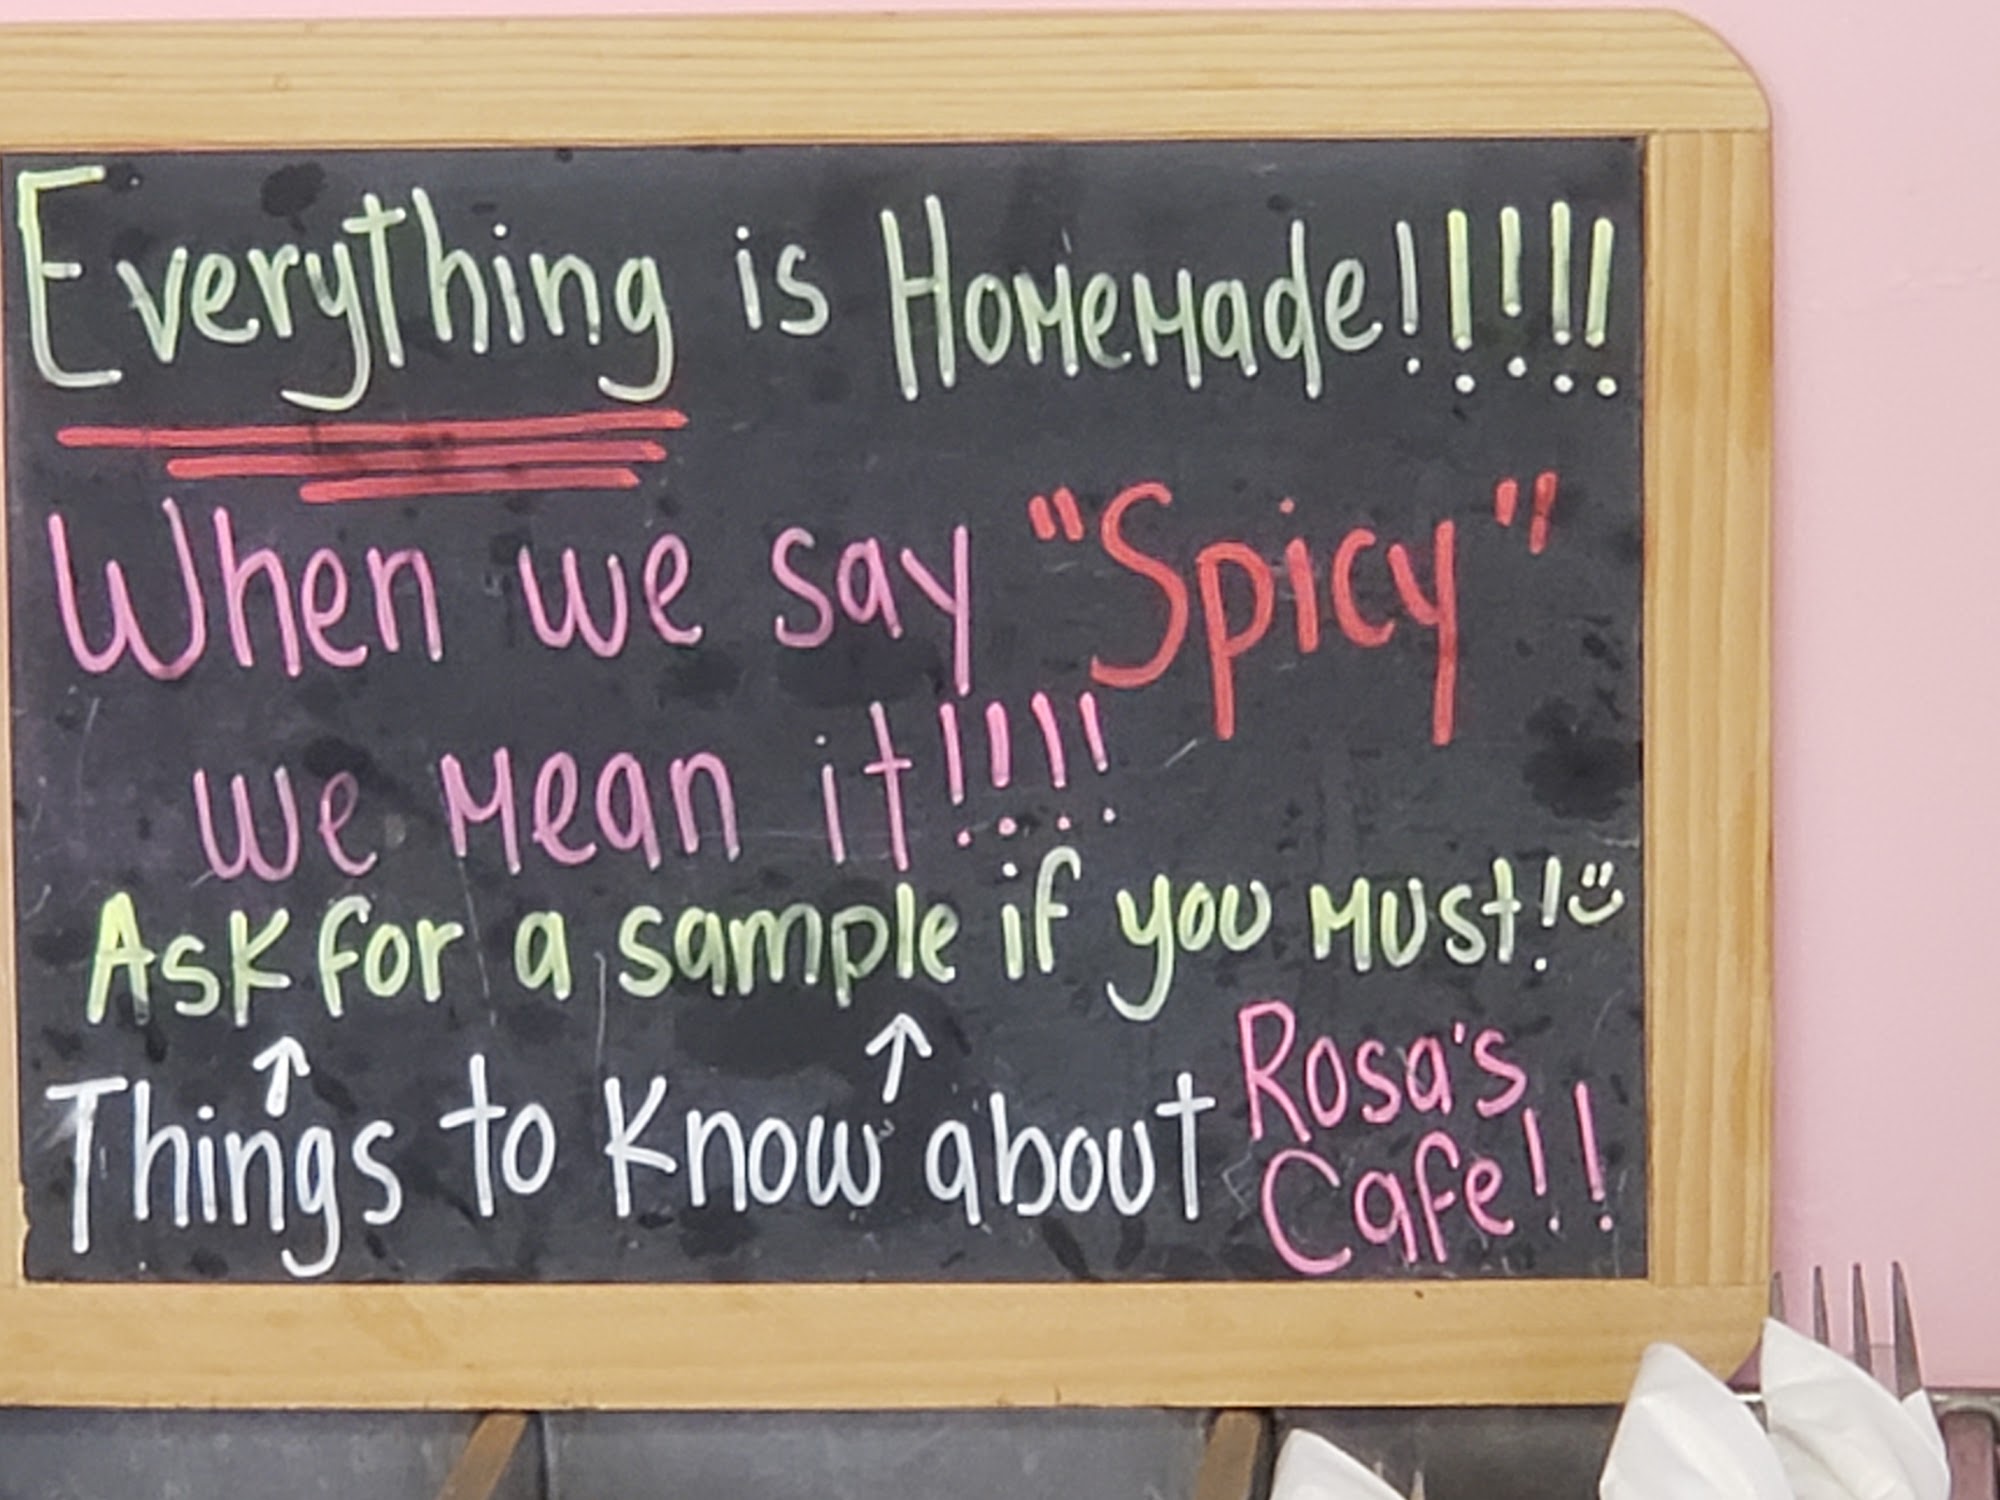 Everything is Homemade!!!!!
When we say "Spicy"
we mean it!!!!
Ask for a sample if you must!
Things to Know about Rosa's
Cafe!!